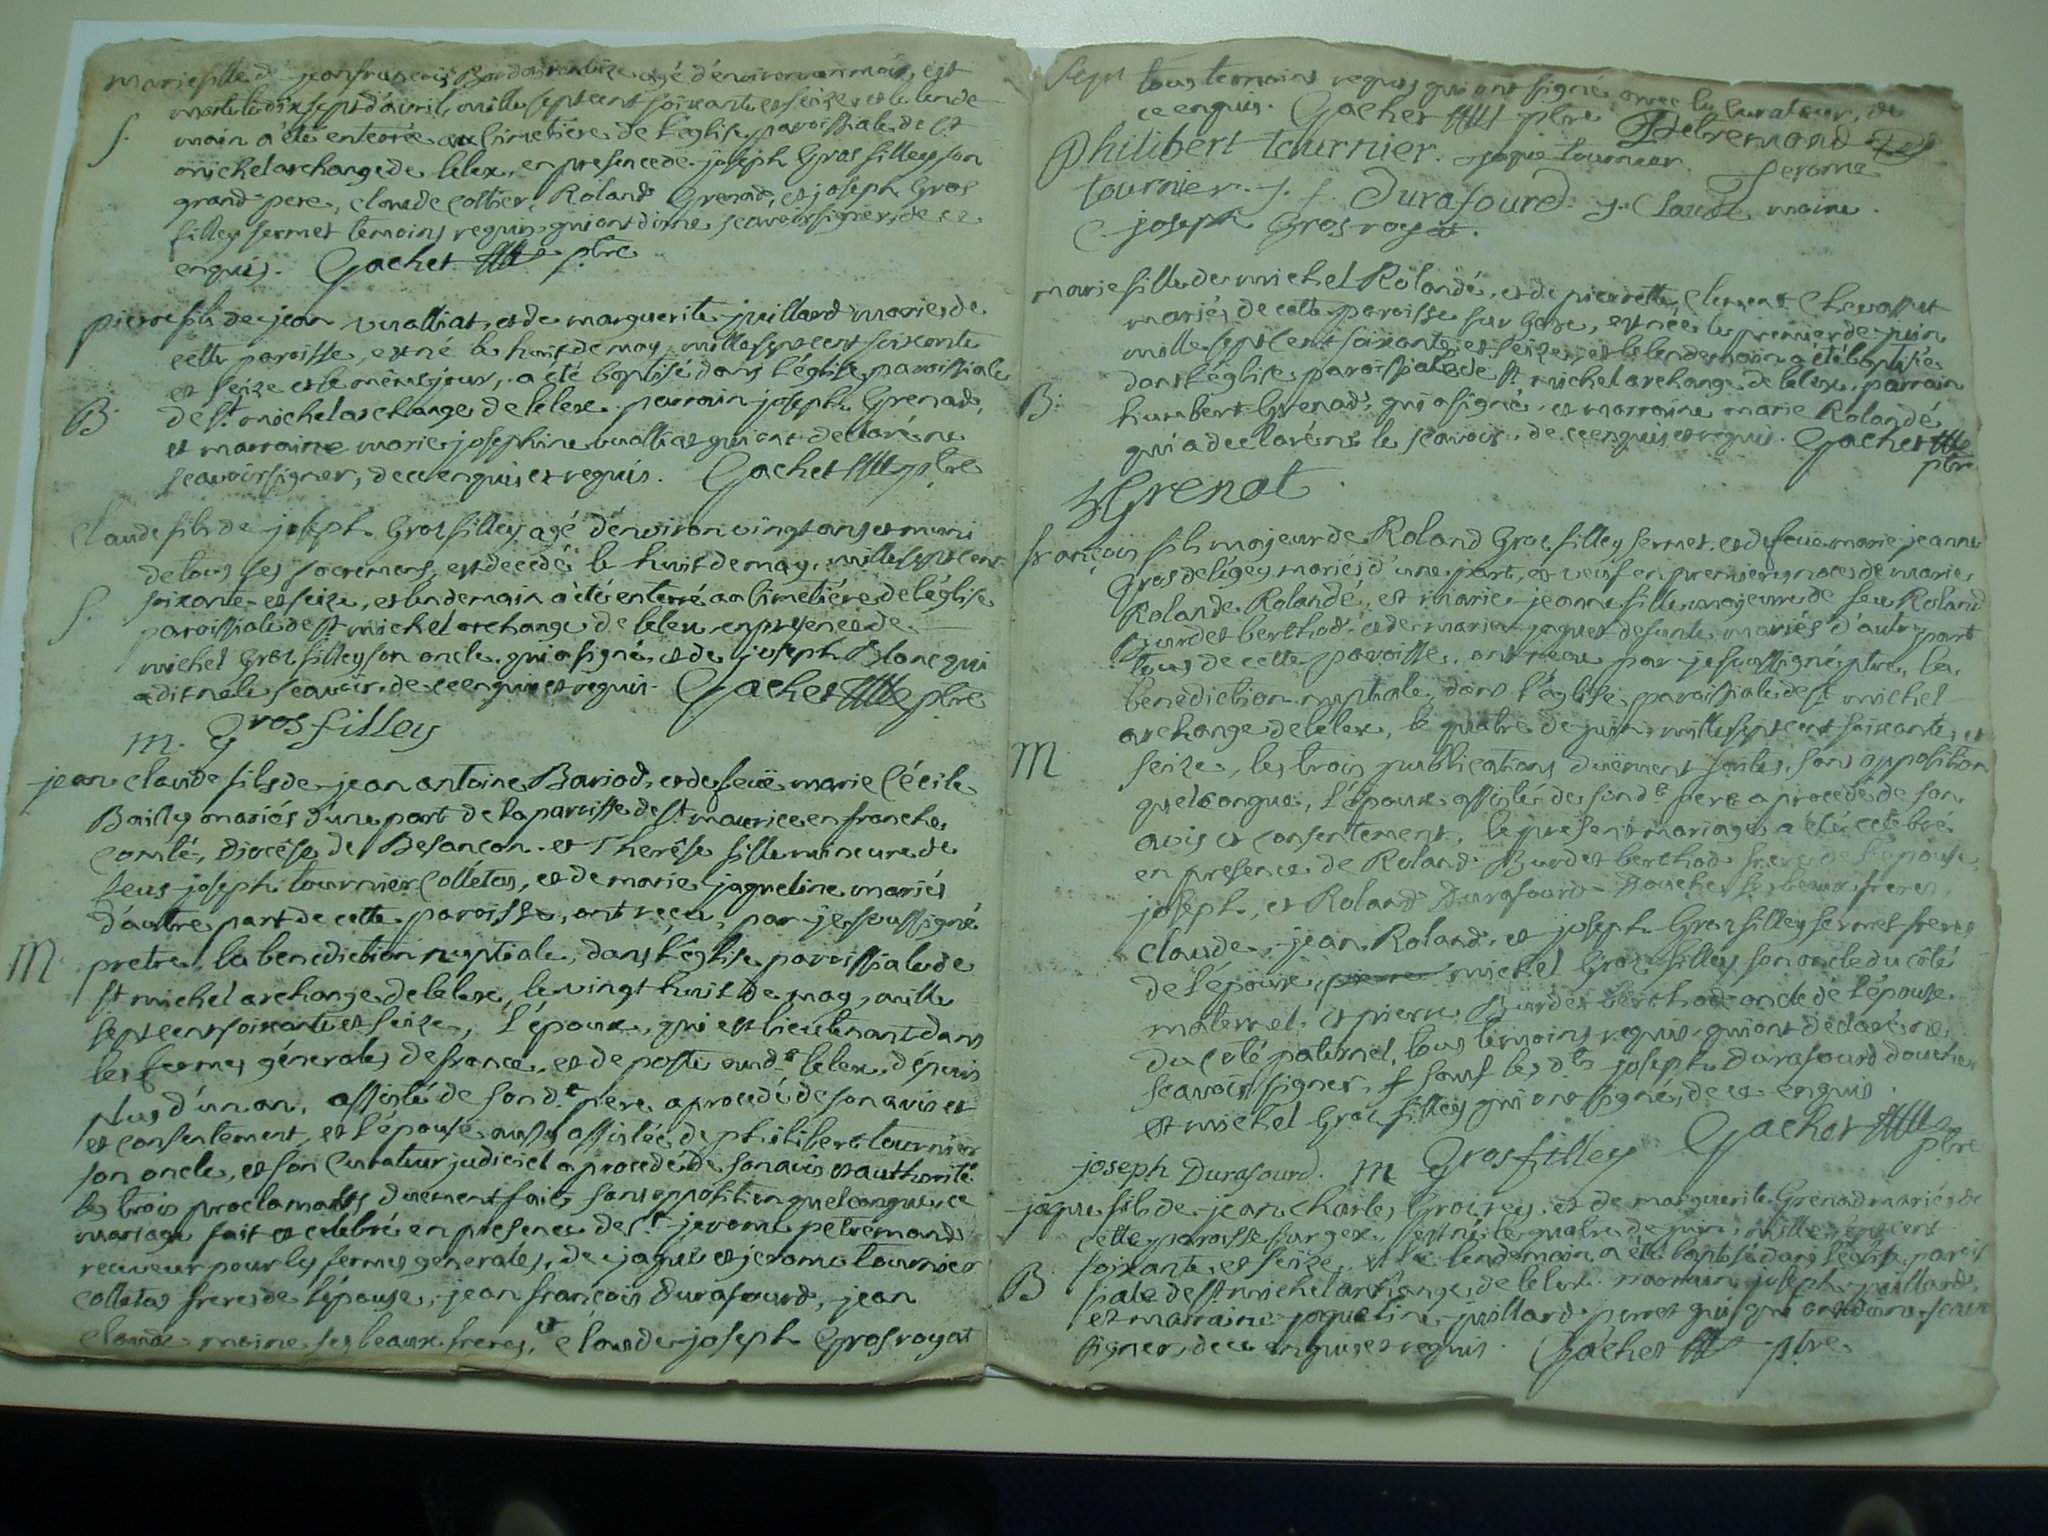 marie fille de jean francois age d'environ un mois, est
morte le dix sept d'avril mille sept cent soixante et seize et le lende
S. main a été enterrée au cimetiere de l'église paroissiale de St
michel archange de lelex, en presence de joseph Gros filley son
grand pere, claude coltier, Roland Grenad, et joseph Gros
filley sermet temoins requis qui ont dit ne scavoir signer, de ce
enquis. Gachet ptre
pierre fils de jean vualliat, et de marguerite juillard mariés de
cette paroisse, est né le huit de may mille sept cent soixante
et seize et le même jour, a été baptisé dans l'église paroissiale
B. de St michel archange de lelex. parrain joseph Grenad,
et marraine marie josephine vualliat qui ont declaré ne
scavoir signer, de ce enquis et requis. Gachet ptre
Claude fils de joseph Gros filley agé d'environ vingt ans et muni
de tous ses sacremens, est decedé le huit de may, mille sept cent
S. soixante et seize, et lendemain a été enterré au cimetiére de l'église
paroissiale de St michel archange de lelex en presence de
michel Gros filley son oncle qui a signé, et de joseph Blanc qui
a dit ne le scavoir, de ce enquis et requis. Gachet ptre
m. Grosfilley
jean claude fils de jean antoine Bariod, et de feüe marie Cécile
Bailly mariés d'une part de la paroisse de St maurice en franche
Comté, Diocése de Besançon. et Therêse fille mineure de
feus joseph tournier Colletas, et de marie jaqueline mariés
d'autre part de cette paroisse, ont reçu, par je soussigné
M. pretre, la benediction nuptiale, dans l'église paroissiale de
St michel archange de lelex, le vingt huit de may, mille
sept cent soixante et seize, L'époux, qui est lieutenant dans
les fermes générales de france, et de poste aud.t lelex, dépuis
plus d'un an, assisté de son d.t pere a procedé de son avis et
et consentement, et l'épouse aussy assistée de philibert tournier
son oncle, et son Curateur judiciel a procedé de son avis et authorité
les trois proclamations duement faites sans opposition quelconque, ce
mariage fait et celebré en presence de Sr jerome petremand
receveur pour les fermes generales, de jaque et jerome tournier
colletas freres de l'épouse, jean francois Durafourd, jean
claude moine ses beaux freres, et claude joseph Grosroyat
tous temoins requis qui ont signé avec le Curateur, de
ce enquis. Gachet ptre Petremand
Philibert tournier. jaque tournier. Jerome
tournier. j. f. Durafourd. j. Claude moine.
C. joseph Grosroyat.
marie fille de michel Rolandé, et de pierrette Clement Chevassut
mariés de cette paroisse sur Gex, est née le premier de juin
mille sept cent soixante et seize, et le lendemain a été baptisée
dans l'église paroissiale de St michel archange de lelex, parrain
B. humbert Grenad, qui a signé, et marraine marie Rolandé
qui a declaré ne le scavoir, de ce enquis et requis. Gachet
ptre
h. Grenat
françois fils majeur de Roland Gros filley sermet, et de feüe marie jeanne
Gros deligey mariés d'une part, et veuf en premieres noces de marie
Rolande Rolandé, et marie jeanne fille majeure de feu Roland
Burdet berthod, et de marie jaquet defunte mariés d'autre part
tous de cette paroisse, ont reçu par je soussigné ptre, la
benediction nuptiale, dans l'église paroissiale de St michel
archange de lelex, le quatre de juin mille sept cent soixante, et
M seize, les trois publications duëment faites, sans opposition
quelconque, L'époux assisté de son d.t pere a procedé de son
avis et consentement, le present mariage a été celebré
en presence de Roland Burdet berthod frere de l'épouse
joseph, et Roland Durafourd Douchet ses beaux freres
claude, jean Roland, et joseph Gros filley sermet freres
de l'époux, michel Gros filley son oncle du côté
maternel, et pierre Burdet berthod oncle de l'épouse
du coté paternel, tous temoins requis qui ont déclaré ne
scavoir signer, sauf les d.ts joseph Durafourd douchet
et michel Gros filley qui ont signé, de ce enquis.
Gachet ptre
joseph Durafourd. m Grosfilley
jaque fils de jean Charles Grosrey, et de marguerite Grenad mariés de
cette paroisse sur gex, est né le quatre de juin, mille sept cent
soixante, et seize, et le lendemain a été baptisé dans l'église parois
B siale de St michel archange de lelex. parrain joseph juillard
et marraine jaqueline juillard qui ont dit ne scavoir
signer, de ce enquis et requis. Gachet ptre